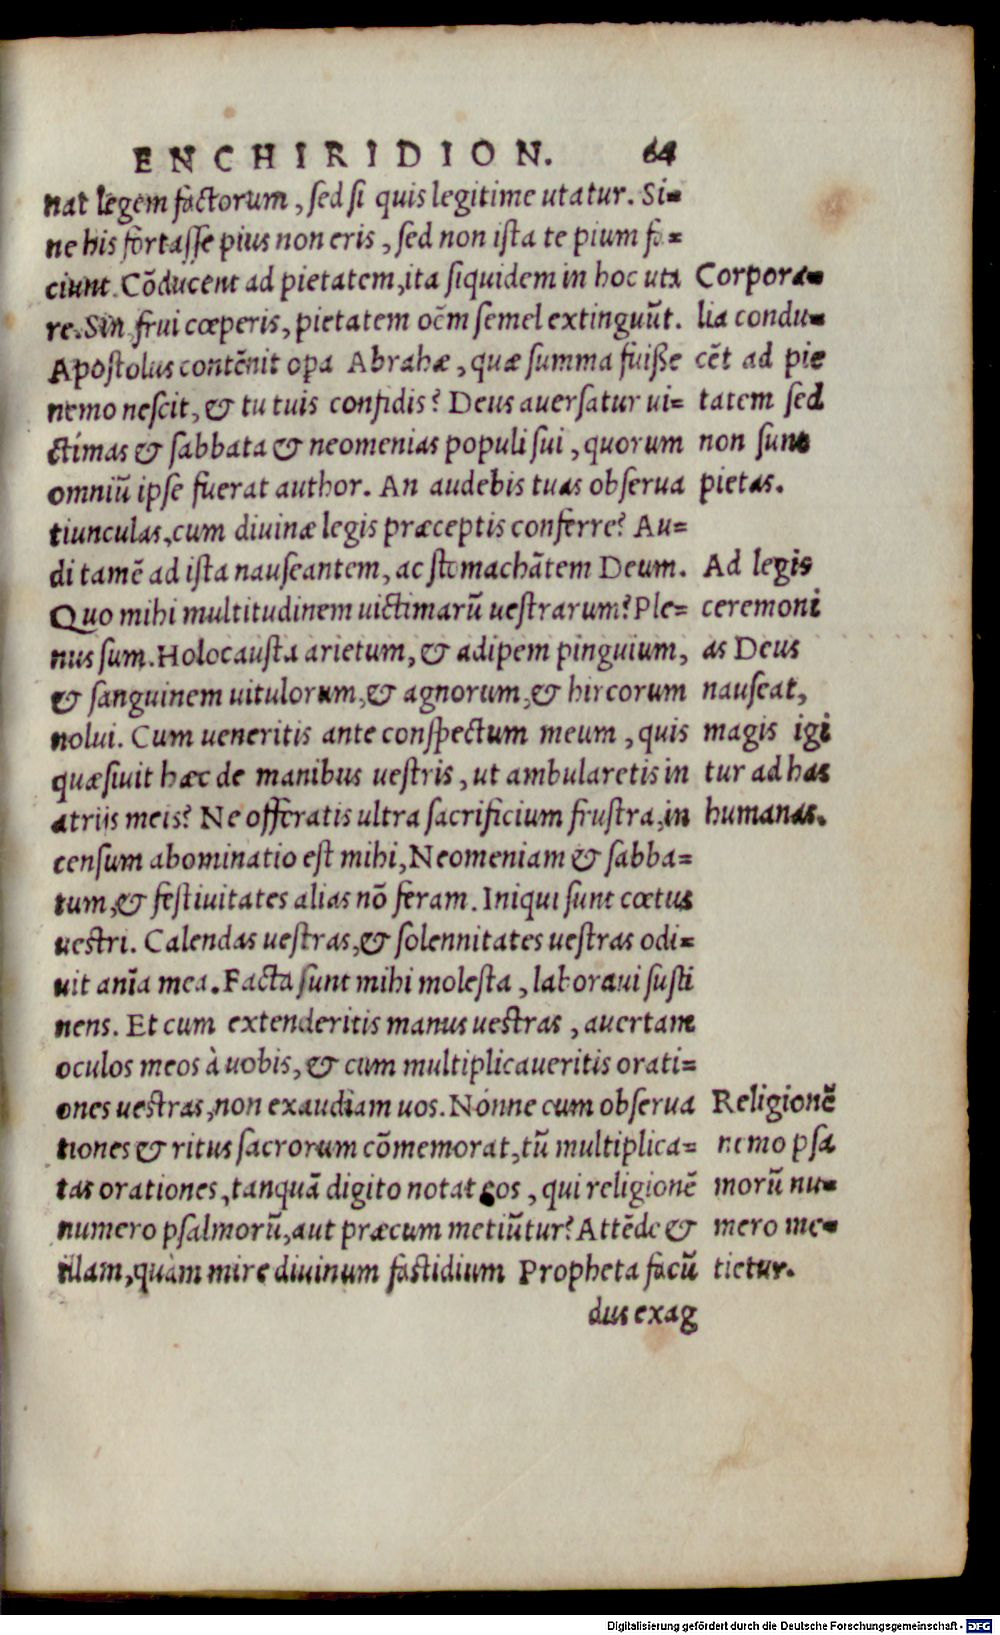 ENCHIRIDION. 64
nat legem factorum, sed si quis legitime utatur. Si=
ne his fortasse pius non eris, sed non ista te pium fa=
ciunt. Cōducent ad pietatem, ita siquidem in hoc uta
re. Sin frui cœperis, pietatem oēm semel extinguūt.
Apostolus contēnit opa Abrahæ, quæ summa fuiße
nemo nescit, & tu tuis confidis? Deus auersatur ui=
ctimas & sabbata & neomenias populi sui, quorum
omniū ipse fuerat author. An audebis tuas obserua
tiunculas, cum diuinæ legis præceptis conferre? Au=
di tamē ad ista nauseantem, ac stomachātem Deum.
Quo mihi multitudinem uictimarū uestrarum? Ple=
nus sum. Holocausta arietum, & adipem pinguium,
& sanguinem uitulorum, & agnorum, & hircorum
nolui. Cum ueneritis ante conspectum meum, quis
quæsiuit hæc de manibus uestris, ut ambularetis in
atrijs meis? Ne offeratis ultra sacrificium frustra, in
censum abominatio est mihi, Neomeniam & sabba=
tum, & festiuitates alias nō feram. Iniqui sunt cœtus
uestri. Calendas uestras, & solennitates uestras odi=
uit anīa mea. Facta sunt mihi molesta, laboraui susti
nens. Et cum extenderitis manus uestras, auertam
oculos meos à uobis, & cum multiplicaueritis orati=
ones uestras, non exaudiam uos. Nónne cum obserua
tiones & ritus sacrorum cōmemorat, tū multiplica=
tas orationes, tanquā digito notat eos, qui religionē
numero psalmorū, aut præcum metiūtur? Attēde &
illam, quàm mire diuinum fastidium Propheta facū
dus exag
Corpora=
lia condu=
cēt ad pie
tatem sed
non sunt
pietas.
Ad legis
ceremoni
as Deus
nauseat,
magis igi
tur ad has
humanas.
Religionē
nemo psa
morū nu=
mero me=
tietur.
Digitalisierung gefördert durch die Deutsche Forschungsgemeinschaft - DFG